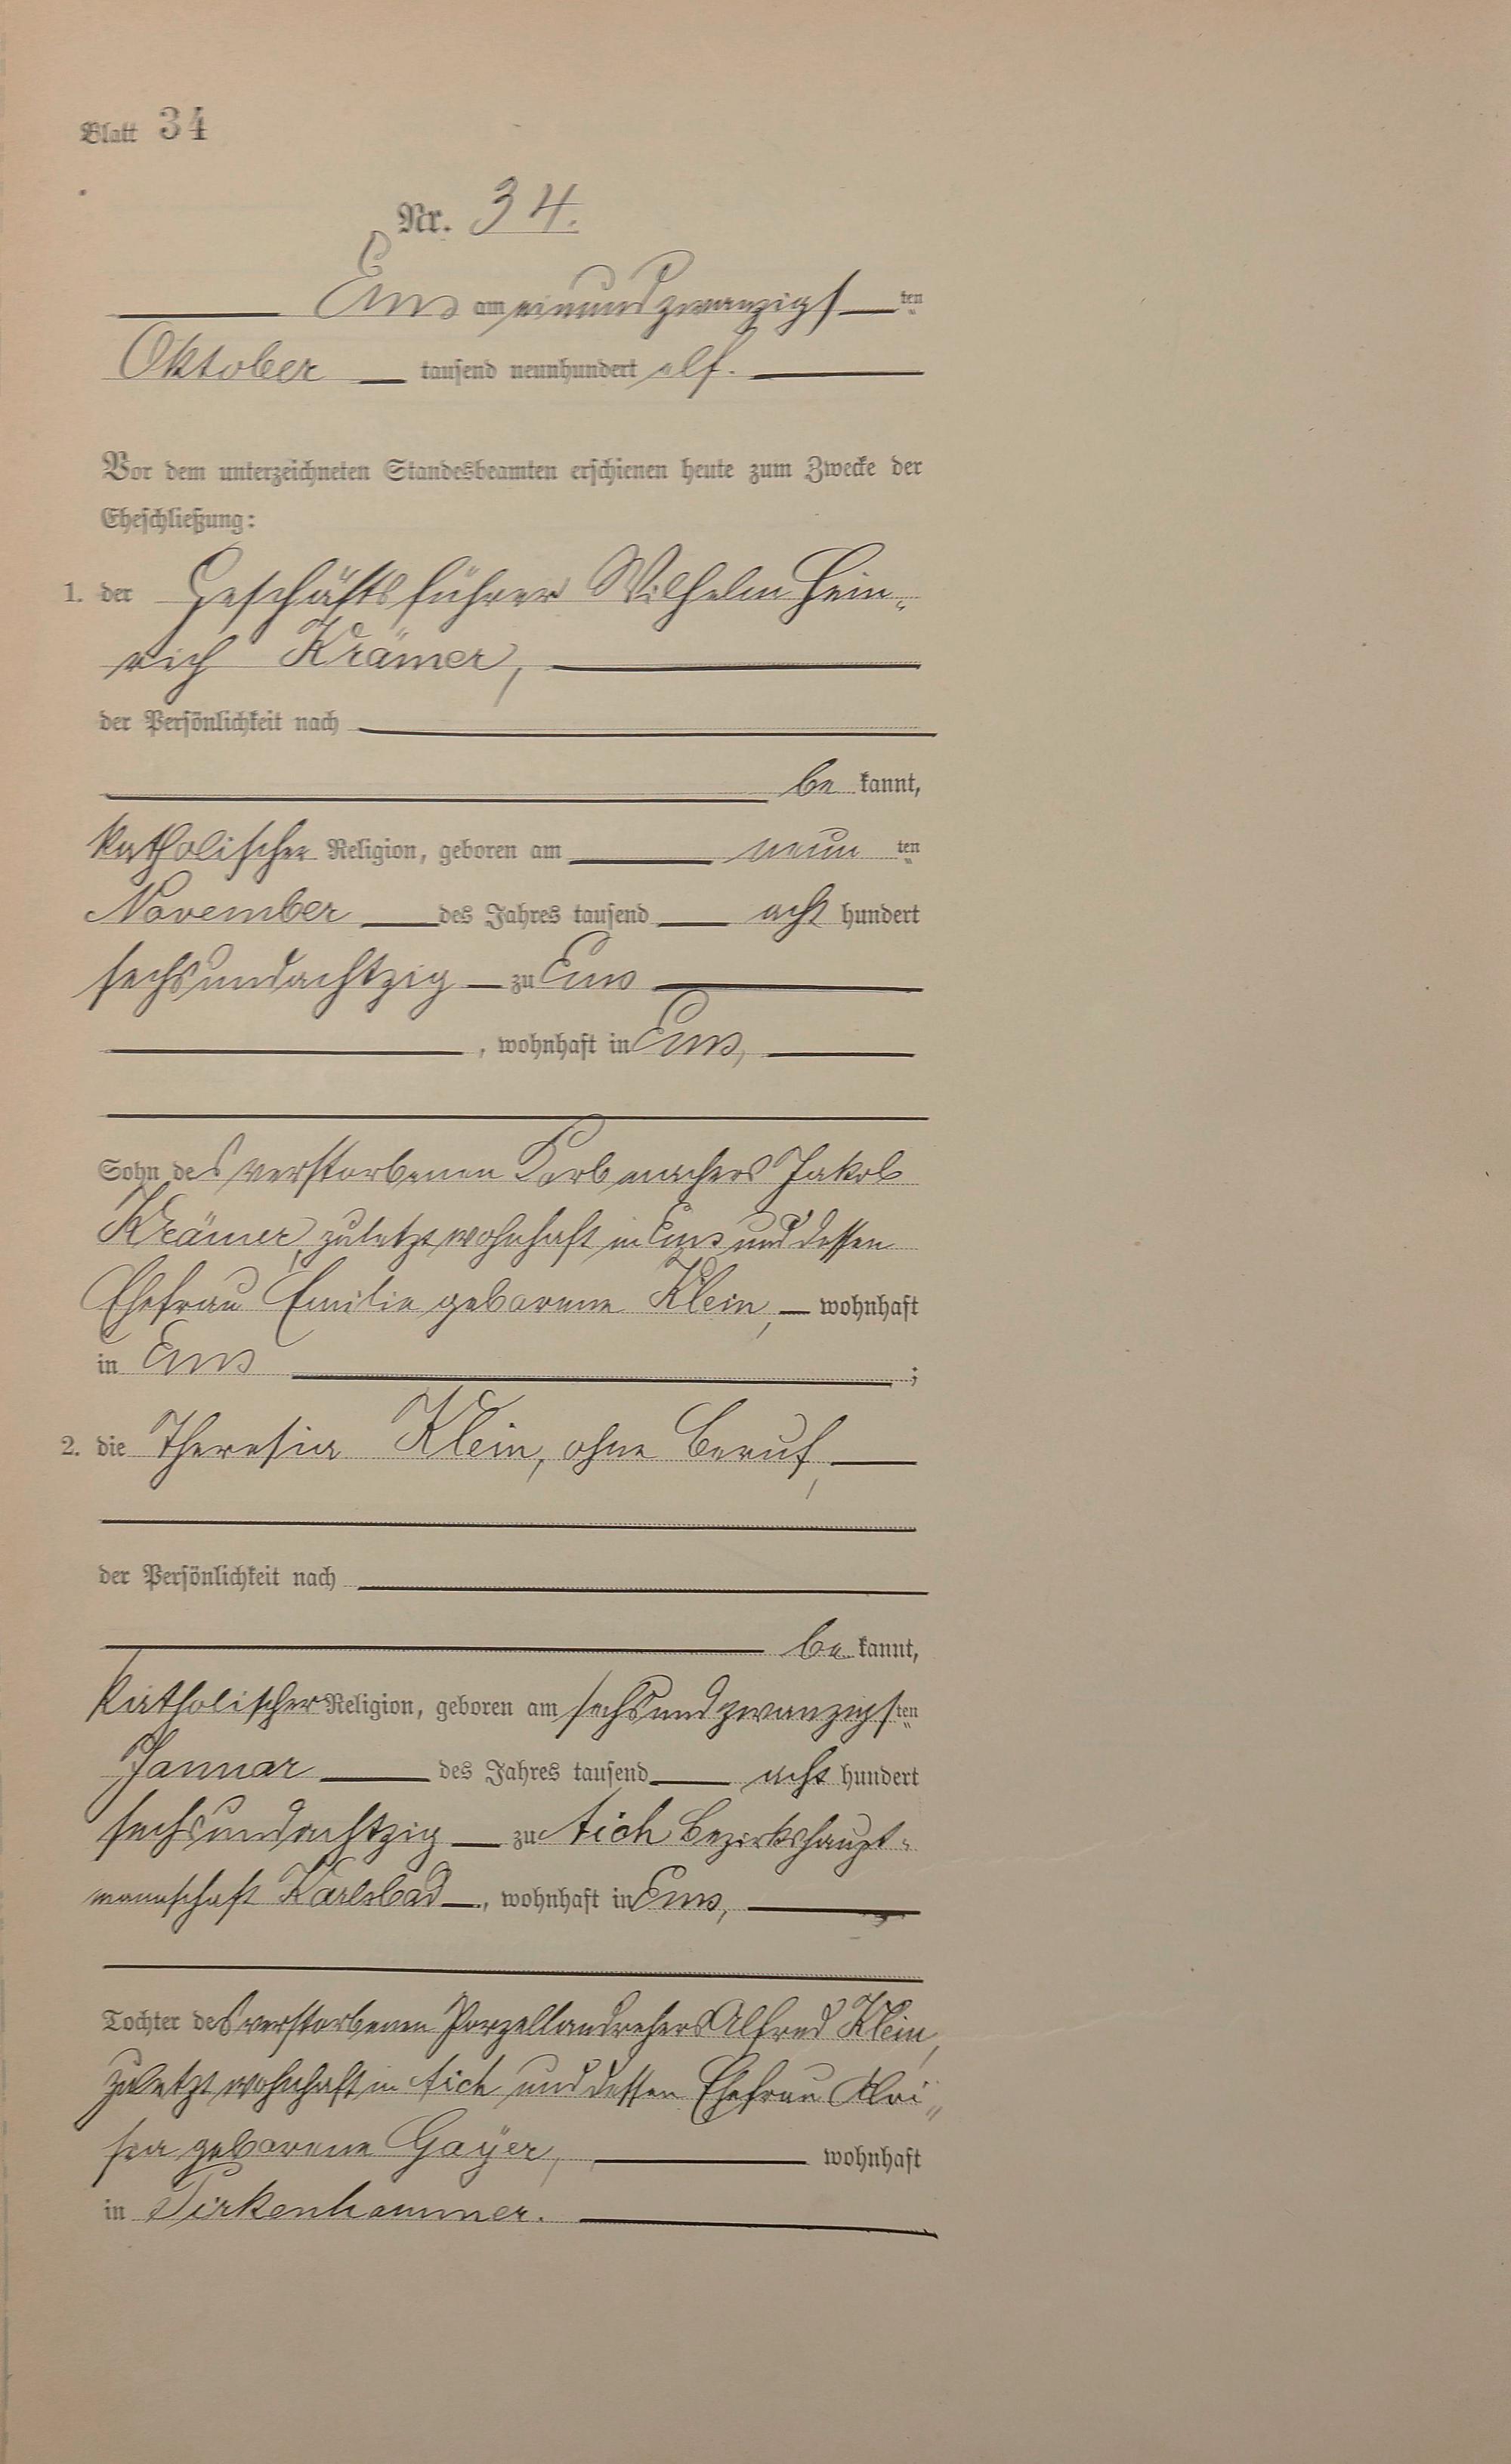 Blatt 34
Nr. 34.
Ems am einundzwanzigsten
Oktober tausend neunhundert elf.
Vor dem unterzeichneten Standesbeamten erschienen heute zum Zwecke der
Eheschließung:
1. der Geschäftsführer Wilhelm Hein=
rich Krämer,
der Persönlichkeit nach
be kannt,
katholischer Religion, geboren am neun ten
November des Jahres tausend acht hundert
sechsundachtzig zu Ems
, wohnhaft in Ems,
Sohn des verstorbenen Korbmachers Jakob
Krämer, zuletzt wohnhaft in Ems und dessen
Ehefrau Emilie geborene Klein, wohnhaft
in Ems ;
2. die Theresia Klein, ohne Beruf,
der Persönlichkeit nach
be kannt,
katholischer Religion, geboren am sechsundzwanzigsten
Januar des Jahres tausend acht hundert
sechsundachtzig zu Aich Bezirkshaupt=
mannschaft Karlsbad, wohnhaft in Ems,
Tochter des verstorbenen Porzellandrehers Alfred Klein,
zuletzt wohnhaft in Aich und dessen Ehefrau Aloi„
sia geborene Gayer, wohnhaft
in Pirkenhammer.